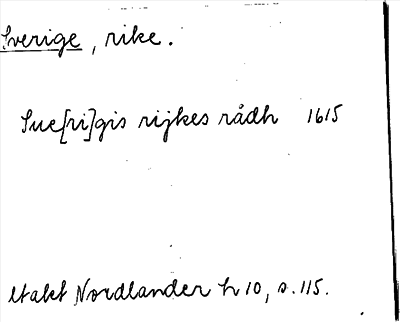 Sverige, rike.
Sue[ri]gis rijkes rådh 1615
Utakt Nordlander h 10, s. 115.